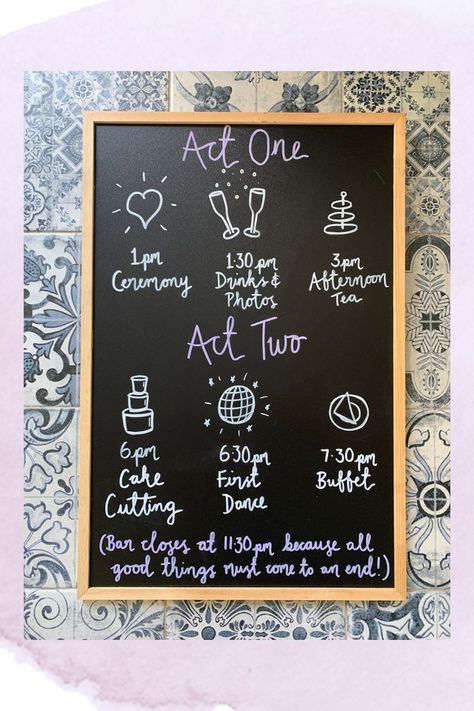 Act One
1pm
Ceremony
1:30pm
Drinks &
Photos
3pm
Afternoon
Tea
Act Two
6pm
Cake
Cutting
6:30pm
First
Dance
7:30pm
Buffet
(Bar closes at 11:30pm because all
good things must come to an end!)